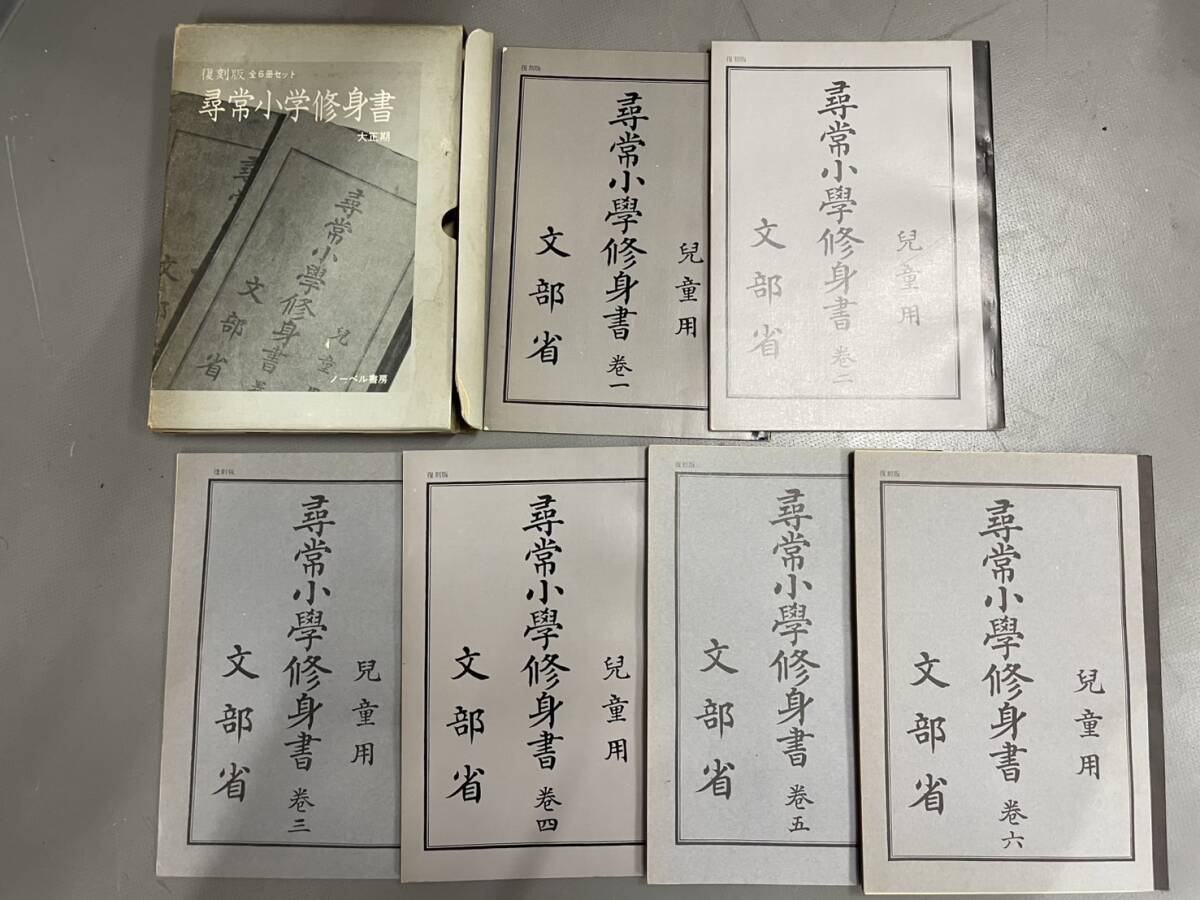 復刻版 全6冊セット
尋常小学修身書
大正期
尋常小學修身書
兒童
文部省
文部
ノーベル書房
復刻版
兒童用
尋常小學修身書 巻一
文部省
復刻版
兒童用
尋常小學修身書 巻二
文部省
復刻版
兒童用
尋常小學修身書 巻三
文部省
復刻版
兒童用
尋常小學修身書 巻四
文部省
復刻版
尋常小學修身書 巻五
文部省
復刻版
兒童用
尋常小學修身書 巻六
文部省